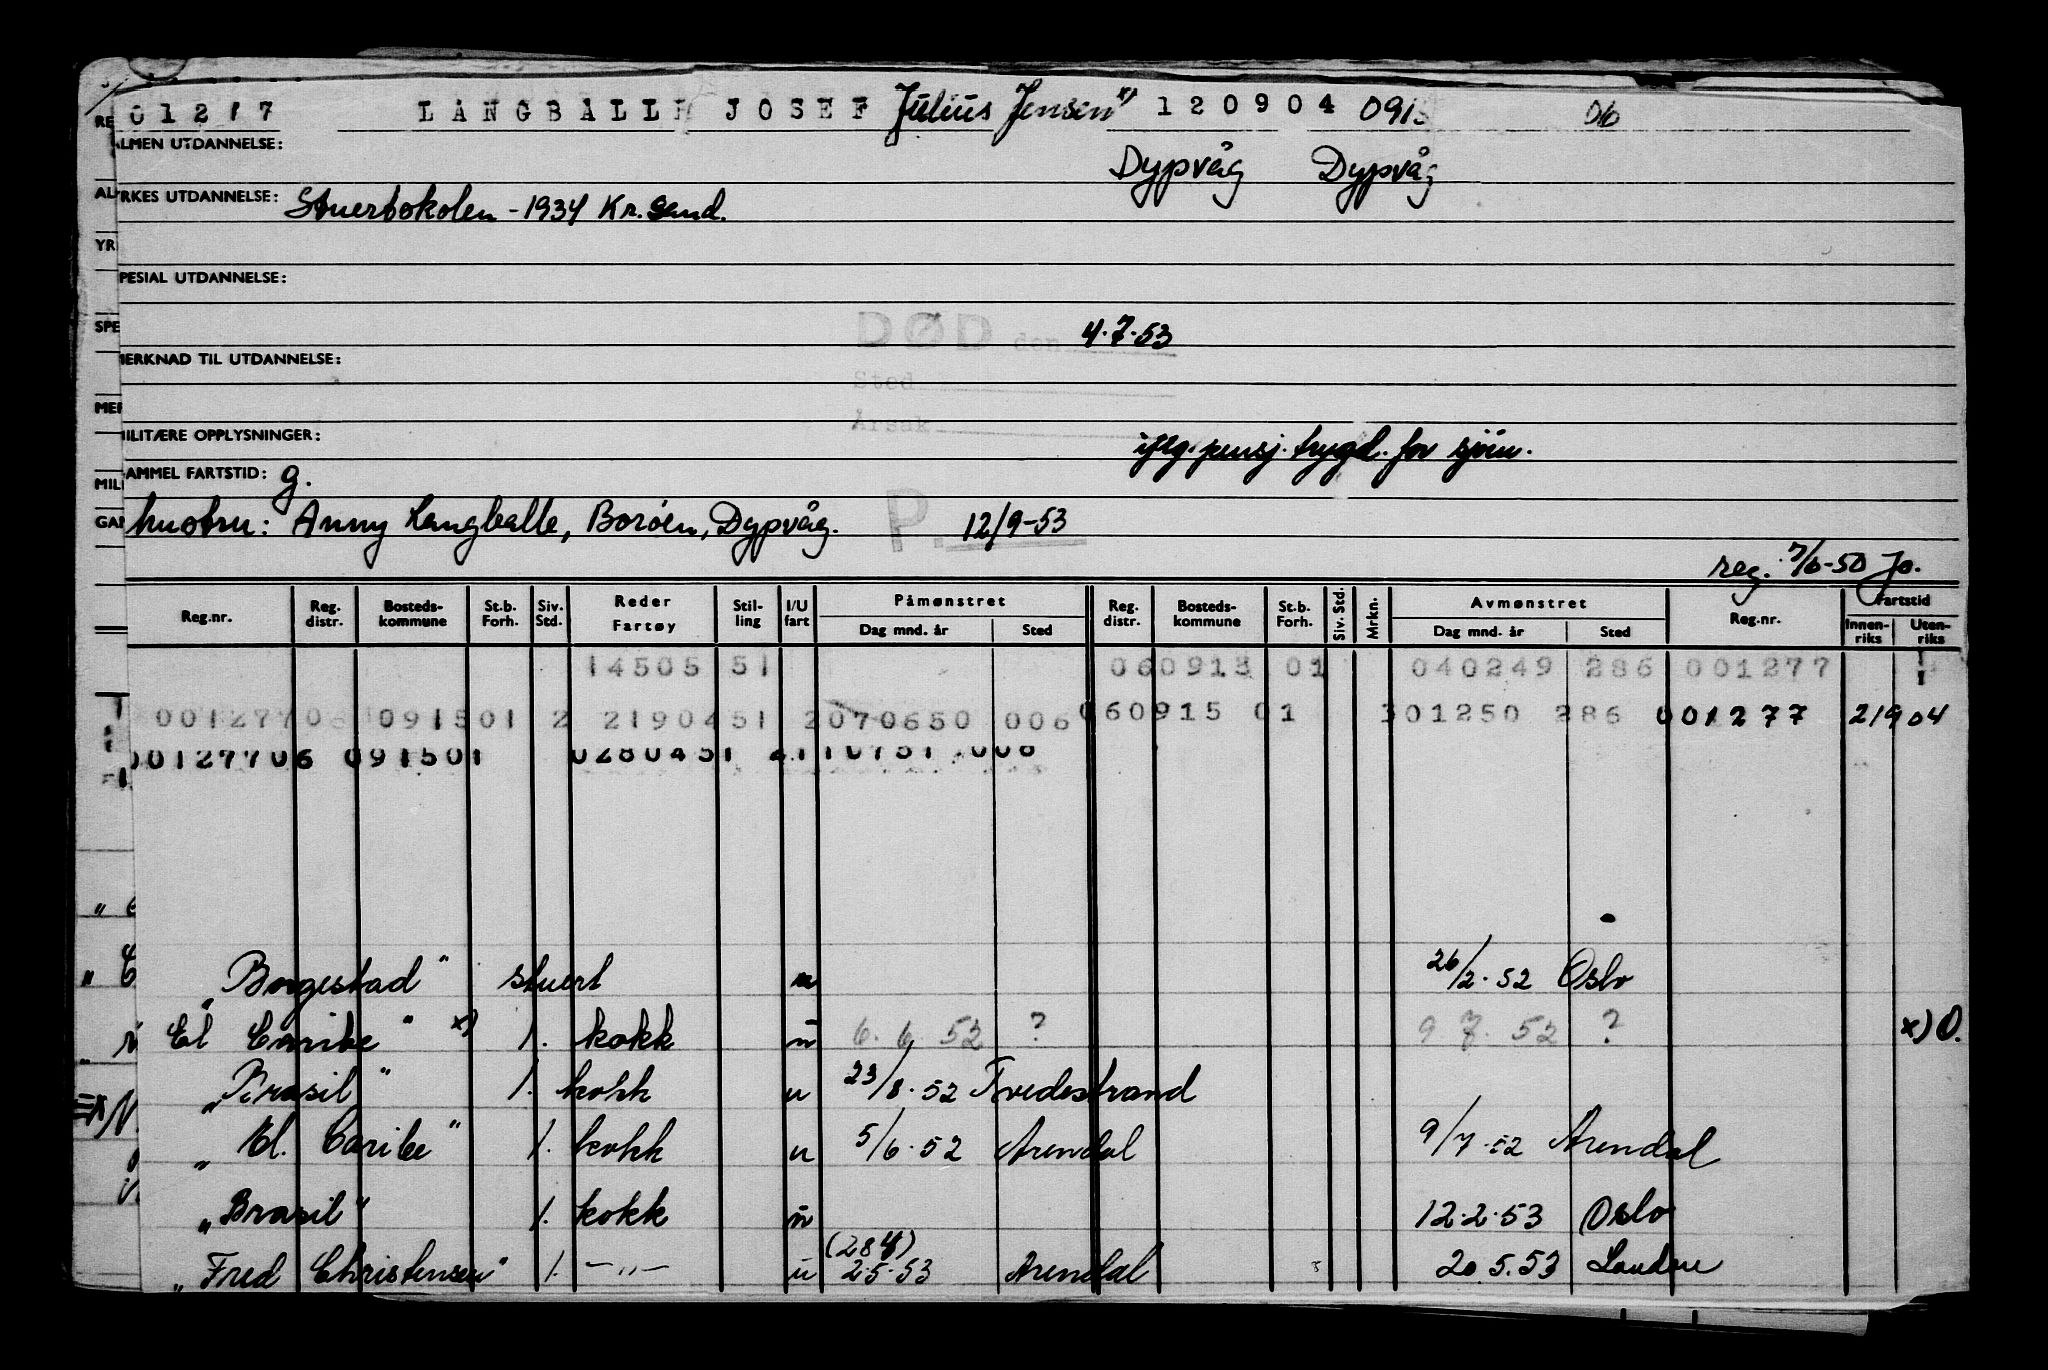 01217 LANGBALLE JOSEF Julius Jensen x) 120904 091 06
Dypvåg Dypvåg
LMEN UTDANNELSE:
RKES UTDANNELSE: Stuertskolen - 1934 Kr.sand.
PESIAL UTDANNELSE:
DØD den 4.7.53
MERKNAD TIL UTDANNELSE:
Sted
Årsak
MILITÆRE OPPLYSNINGER:
iflg. pensj. trygd. for sjøm.
AMMEL FARTSTID: g.
hustru: Anny Langballe, Borøen, Dypvåg. P. 12/9-53
reg. 7/6-50 Jo.
Reg.nr. Reg. distr. Bosteds-kommune St.b. Forh. Siv. Std. Reder Fartøy Stil-ling I/U fart Påmønstret Dag mnd. år Sted Reg. distr. Bosteds-kommune St.b. Forh. Siv. Std. Mrkn. Avmønstret Dag mnd. år Sted Reg.nr. Fartstid Innen-riks Uten-riks
14505 51 060913 01 040249 286 001277
00127706 091501 2 2190451 2070650 006 060915 01 301250 286 001277 21904
00127706 091501 0280451 2110751 006
"Borgestad" stuert u 26/2.52 Oslo
"El Caribe" x) 1. kokk u 6.6 52 ? 9 7.52 ? x) O.
"Brasil" 1. kokk u 23/8.52 Tvedestrand
"El. Caribe" 1. kokk u 5/6.52 Arendal 9/7.52 Arendal
"Brasil" 1. kokk u 12.2.53 Oslo
(28 4)
"Fred Christensen" 1. -"- u 2.5.53 Arendal 20.5.53 London